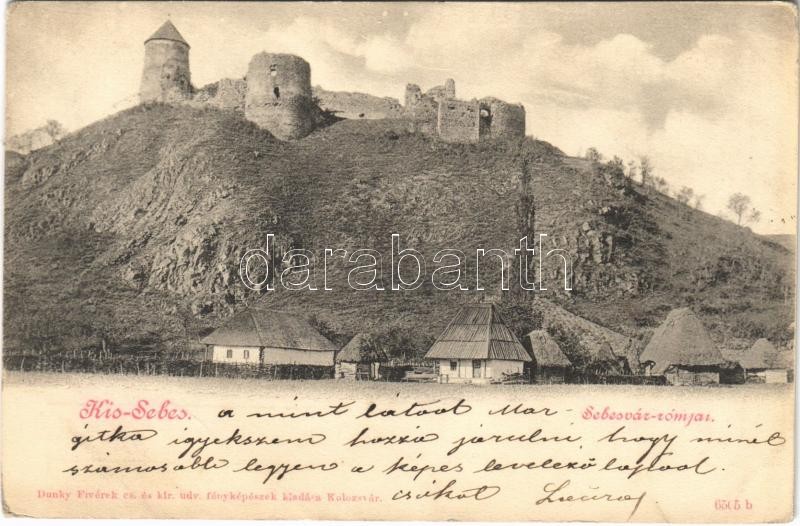 darabanth
Kis-Sebes. Sebesvár-rómjai.
a mint látod Mar-
gitka igyekszem hozzá járulni, hogy minél
számosabb legyen a képes levelező lapod.
csókol
Dunky Fivérek cs. és kir. udv. fényképészek kiadása Kolozsvár. 6505 b